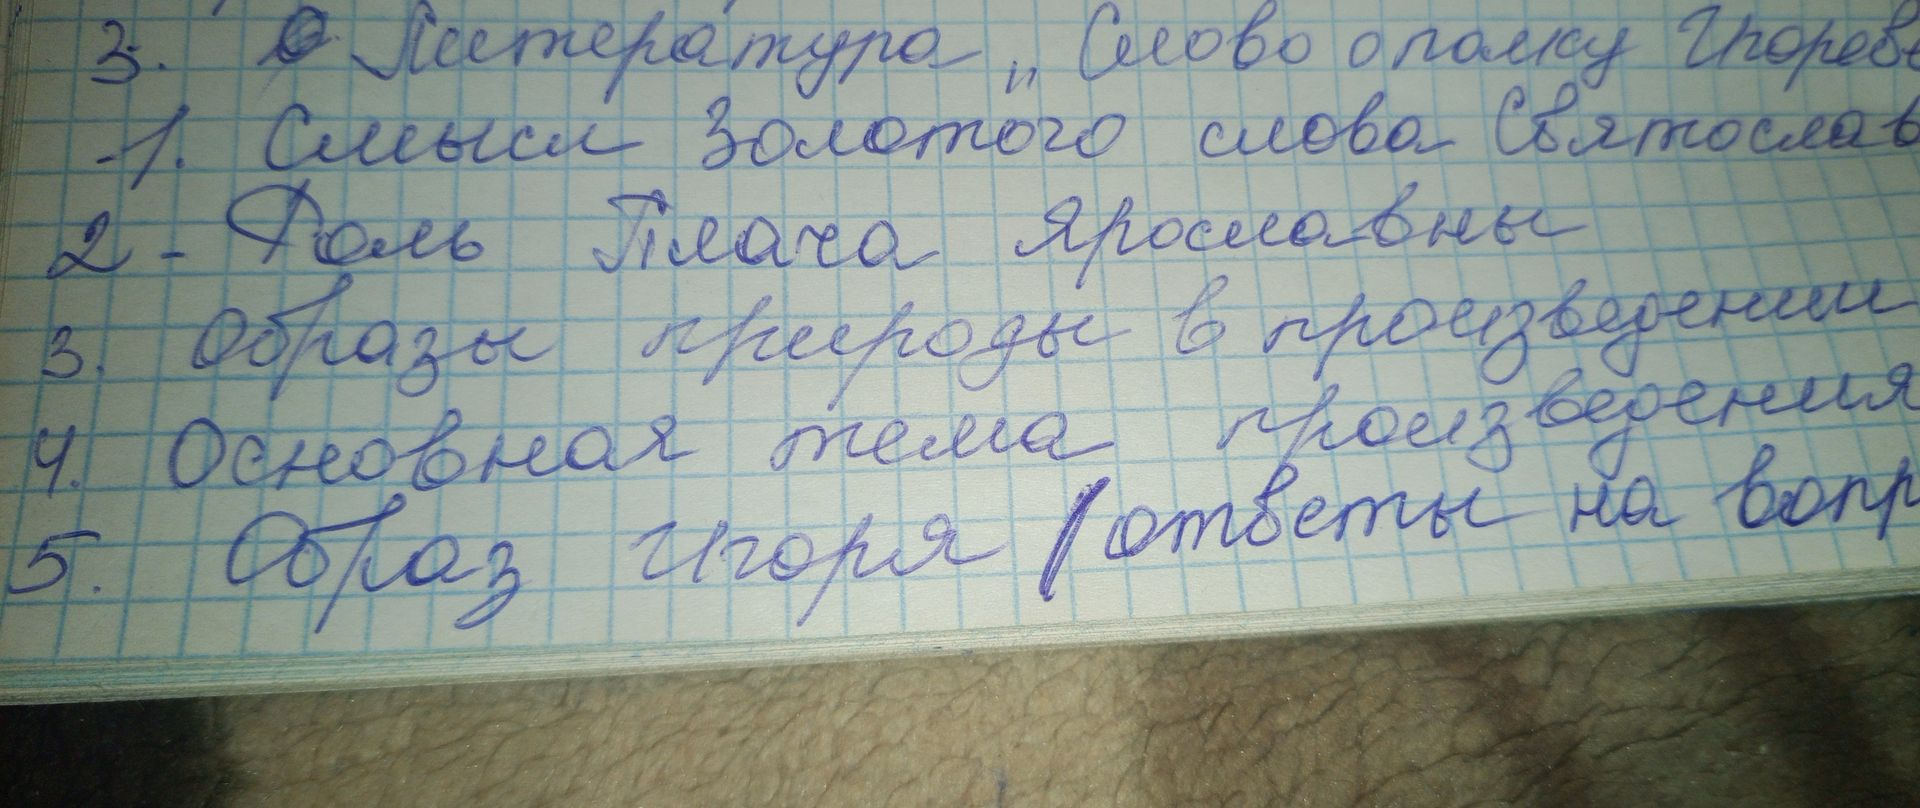 3. Литература „Слово о полку Игорове
1. Смысл Золотого слова Святослав
2 - Роль Плача Ярославны
3. Образы природы в произведении
4. Основная тема произведения
5. Образ Игоря (ответы на вопр